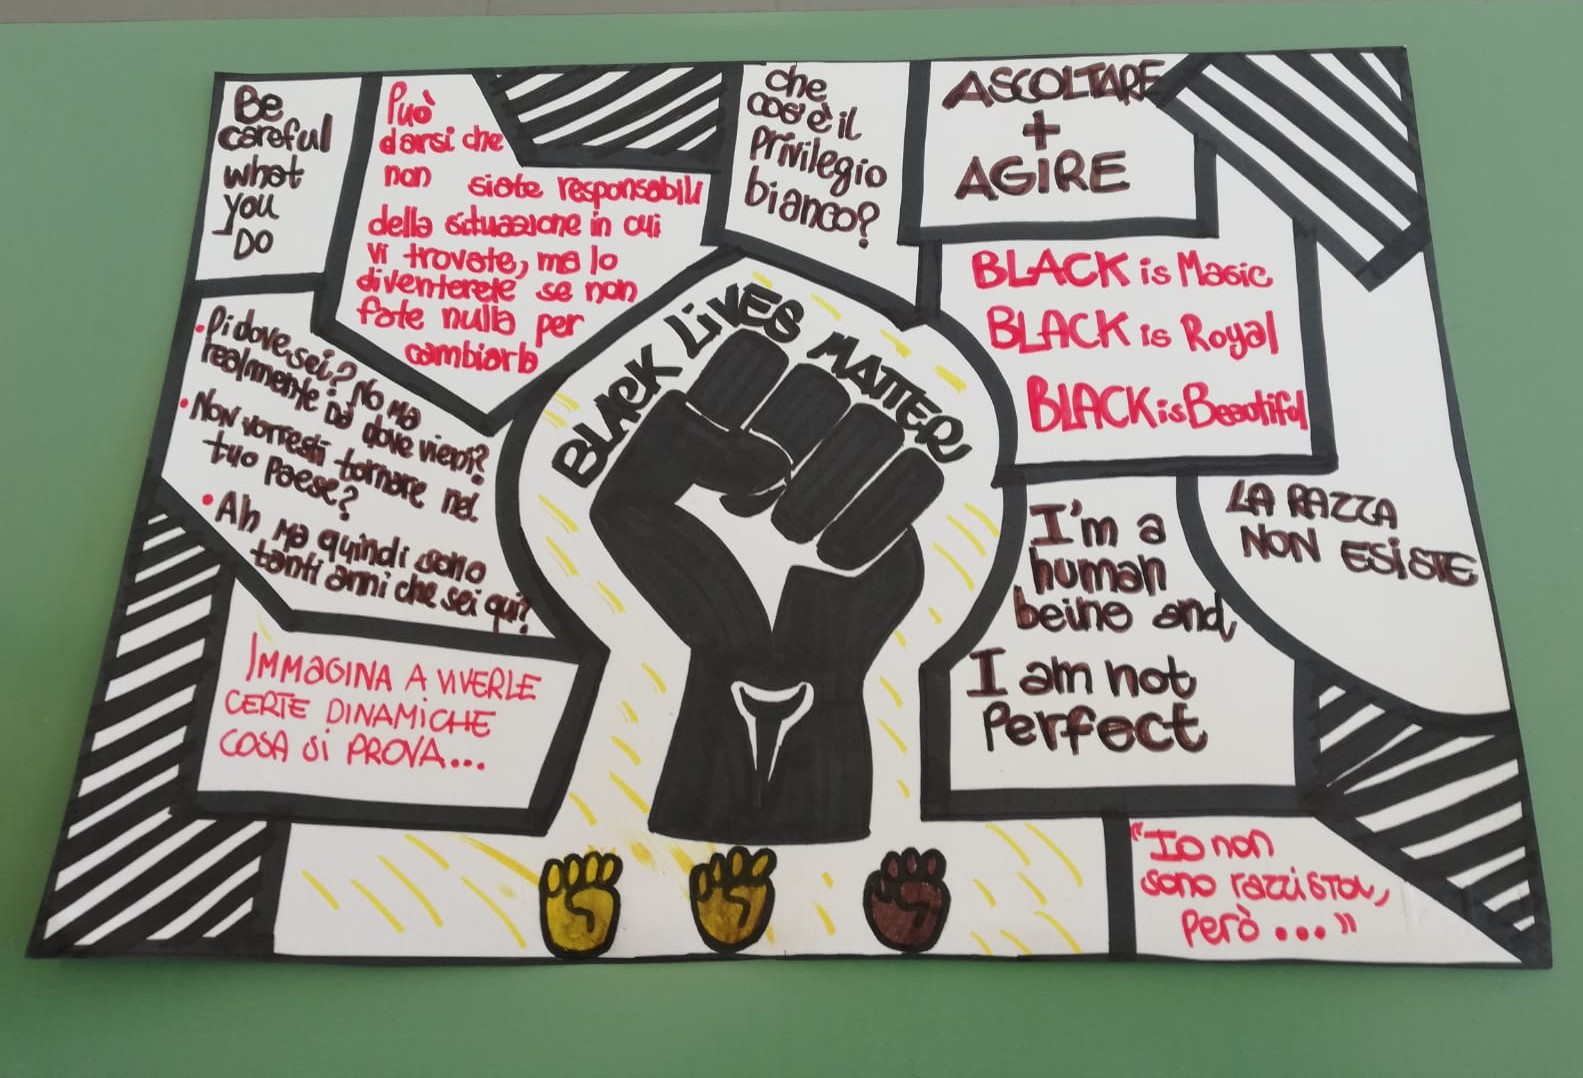 Be
careful
what
you
DO
Può
darsi che
non siate responsabili
della situazione in cui
vi trovate, ma lo
diventerete se non
fate nulla per
cambiarla
che
cos'è il
Privilegio
bianco?
ASCOLTARE
+
AGIRE
BLACK is Magic
BLACK is Royal
BLACK is Beautiful
BLACK LIVES MATTER
• Di dove sei? No ma
realmente da dove vieni?
• Non vorresti tornare nel
tuo Paese?
• Ah ma quindi sono
tanti anni che sei qui?
IMMAGINA A VIVERLE
CERTE DINAMICHE
COSA SI PROVA...
I'm a
human
being and
I am not
Perfect
LA RAZZA
NON ESISTE
"Io non
sono razzista,
Però ..."